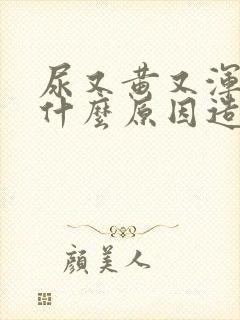 尿又黄又渾
什麼原因造
顔美人